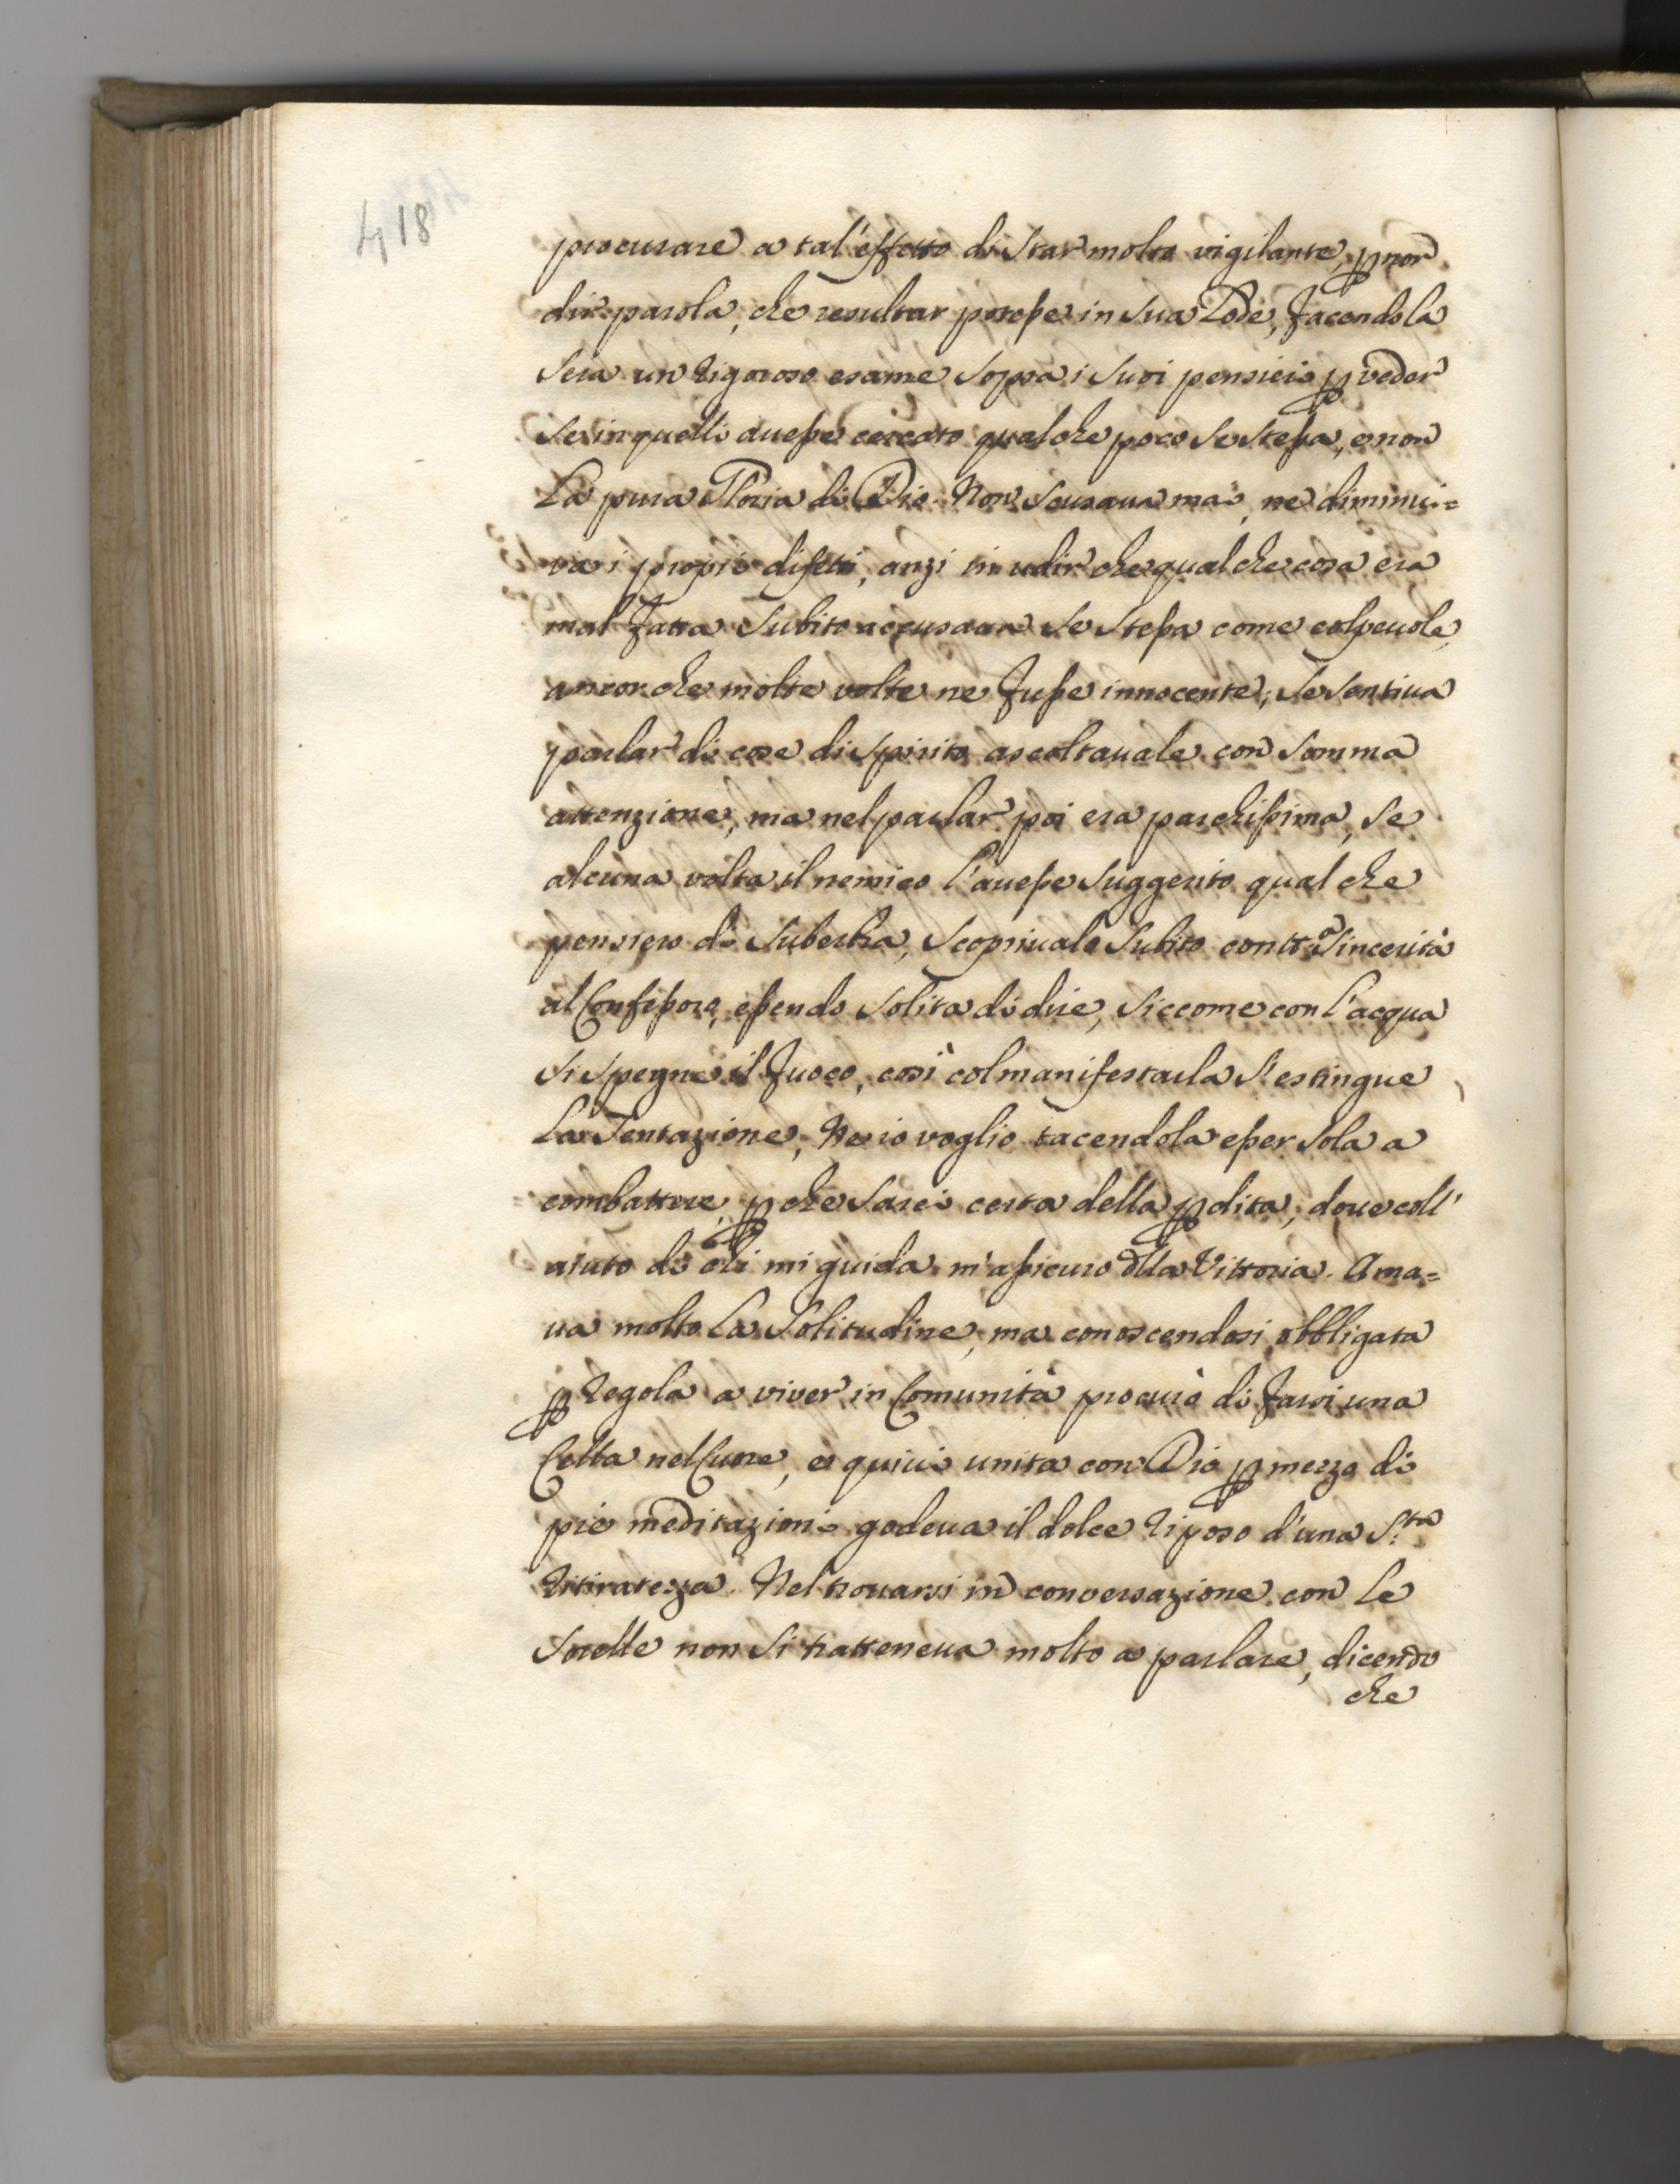 418
procurare a tal'effetto di star molto vigilante, p non
dir parola, che resultar potesse in sua Lode, facendo la
sera un rigoroso esame sopra i suoi pensieri p veder
se in quelli avesse cercato qualche poco se stessa, e non
La pura Gloria di Dio. Non scusava mai, ne diminui=
va i propri difetti, anzi in udir che qualche cosa era
mal fatta subito accusava se stessa come colpevole,
ancor che molte volte ne fusse innocente; se sentiva
parlar di cose di spirito ascoltavale con somma
attenzione, ma nel parlar poi era parchissima, se
alcuna volta il nemico l'avesse suggerito qual che
pensiero di suberbia, scoprivalo subito con tta sincerità
al Confessore, essendo solita di dire, siccome con l'acqua
si spegne il fuoco, così col manifestarla s'estingue
La Tentazione, Ne io voglio tacendola esser sola a
combattere, pche sarei certa della pdita, dove coll'
aiuto di chi mi guida m'assicuro dlla Vittoria. Ama=
va molto La Solitudine, ma conoscendosi obbligata
p regola a viver in Comunità procurò di farsi una
Cella nel Cuore, e quivi unita con Dio p mezzo di
pie meditazioni godeva il dolce riposo d'una S.ta
ritiratezza. Nel trovarsi in conversazione con le
sorelle non si tratteneva molto a parlare, dicendo
che